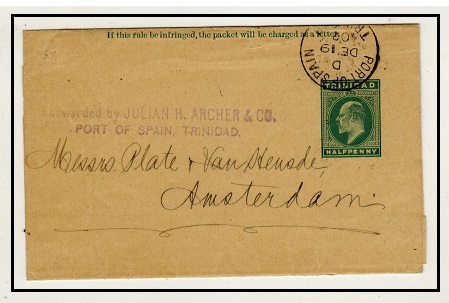 If this rule be infringed, the packet will be charged as a letter.
PORT OF SPAIN
D
DE 19
TRINIDAD
HALFPENNY
Forwarded by JULIAN H. ARCHER & CO.
PORT OF SPAIN, TRINIDAD.
Messrs. Plate & Van Heusde,
Amsterdam.